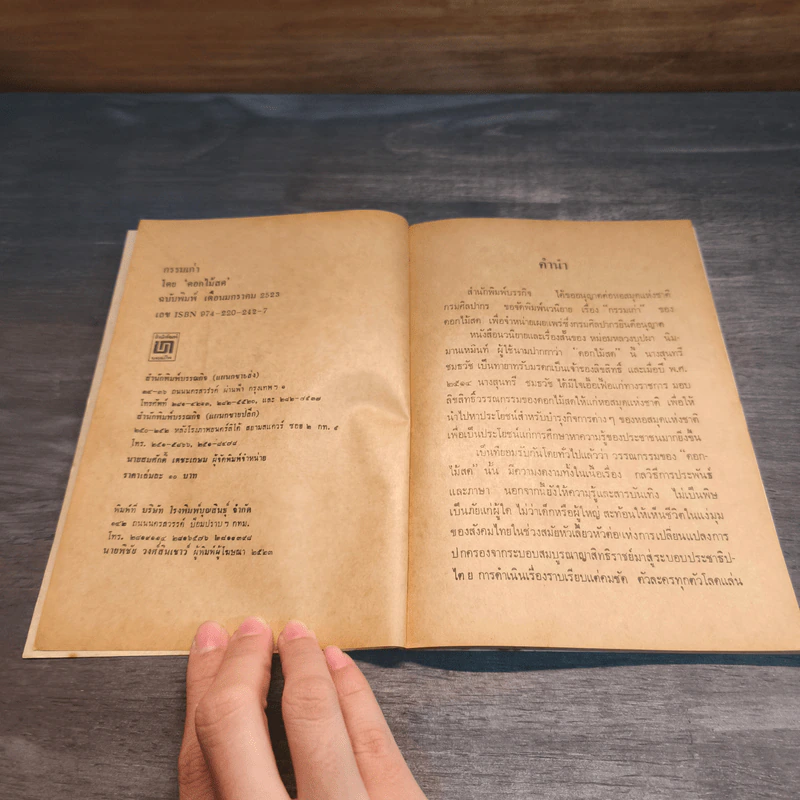 กรรมเก่า
โดย 'ดอกไม้สด'
ฉบับพิมพ์ เดือนมกราคม 2523
เลข ISBN 974-220-242-7
สำนักพิมพ์บรรณกิจ (แผนกขายส่ง)
๓๔-๓๖ ถนนนครสวรรค์ นางเลิ้ง กรุงเทพฯ ๑
โทรศัพท์ และ
สำนักพิมพ์บรรณกิจ (แผนกขายปลีก)
หลังโรงภาพยนตร์ลิโด้ สยามสแควร์ ซอย ๒ กท. ๕
โทร.
นายสมศักดิ์ เตชะเกษม ผู้จัดพิมพ์จำหน่าย
ราคาเล่มละ ๑๐ บาท
พิมพ์ที่ บริษัท โรงพิมพ์บุญสินธุ์ จำกัด
๑๔๒ ถนนนครสวรรค์ ป้อมปราบฯ กทม.
โทร.
นายพิชัย วงศ์สินเชาว์ ผู้พิมพ์ผู้โฆษณา ๒๕๒๓
คำนำ
สำนักพิมพ์บรรณกิจ ได้ขออนุญาตต่อหอสมุดแห่งชาติ
กรมศิลปากร ขอจัดพิมพ์นวนิยาย เรื่อง "กรรมเก่า" ของ
ดอกไม้สด เพื่อจำหน่ายเผยแพร่ซึ่งกรมศิลปากรยินดีอนุญาต
หนังสือนวนิยายและเรื่องสั้นของ หม่อมหลวงบุปผา นิม-
มานเหมินท์ ผู้ใช้นามปากกาว่า "ดอกไม้สด" นี้ นางสุนทรี
ชมธวัช เป็นทายาทรับมรดกเป็นเจ้าของลิขสิทธิ์ และเมื่อปี พ.ศ.
๒๕๑๔ นางสุนทรี ชมธวัช ได้มีใจเอื้อเฟื้อแก่ทางราชการ มอบ
ลิขสิทธิ์วรรณกรรมของดอกไม้สดให้แก่หอสมุดแห่งชาติ เพื่อให้
นำไปหาประโยชน์สำหรับบำรุงกิจการต่างๆ ของหอสมุดแห่งชาติ
เพื่อเป็นประโยชน์แก่การศึกษาหาความรู้ของประชาชนมากยิ่งขึ้น
เป็นที่ยอมรับกันโดยทั่วไปแล้วว่า วรรณกรรมของ "ดอก-
ไม้สด" นั้น มีความงดงามทั้งในเนื้อเรื่อง กลวิธีการประพันธ์
และภาษา นอกจากนี้ยังให้ความรู้และสารบันเทิง ไม่เป็นพิษ
เป็นภัยแก่ผู้ใด ไม่ว่าเด็กหรือผู้ใหญ่ สะท้อนให้เห็นชีวิตในแง่มุม
ของสังคมไทยในช่วงสมัยหัวเลี้ยวหัวต่อแห่งการเปลี่ยนแปลงการ
ปกครองจากระบอบสมบูรณาญาสิทธิราชย์มาสู่ระบอบประชาธิป-
ไตย การดำเนินเรื่องราบเรียบแต่คมชัด ตัวละครทุกตัวโลดแล่น